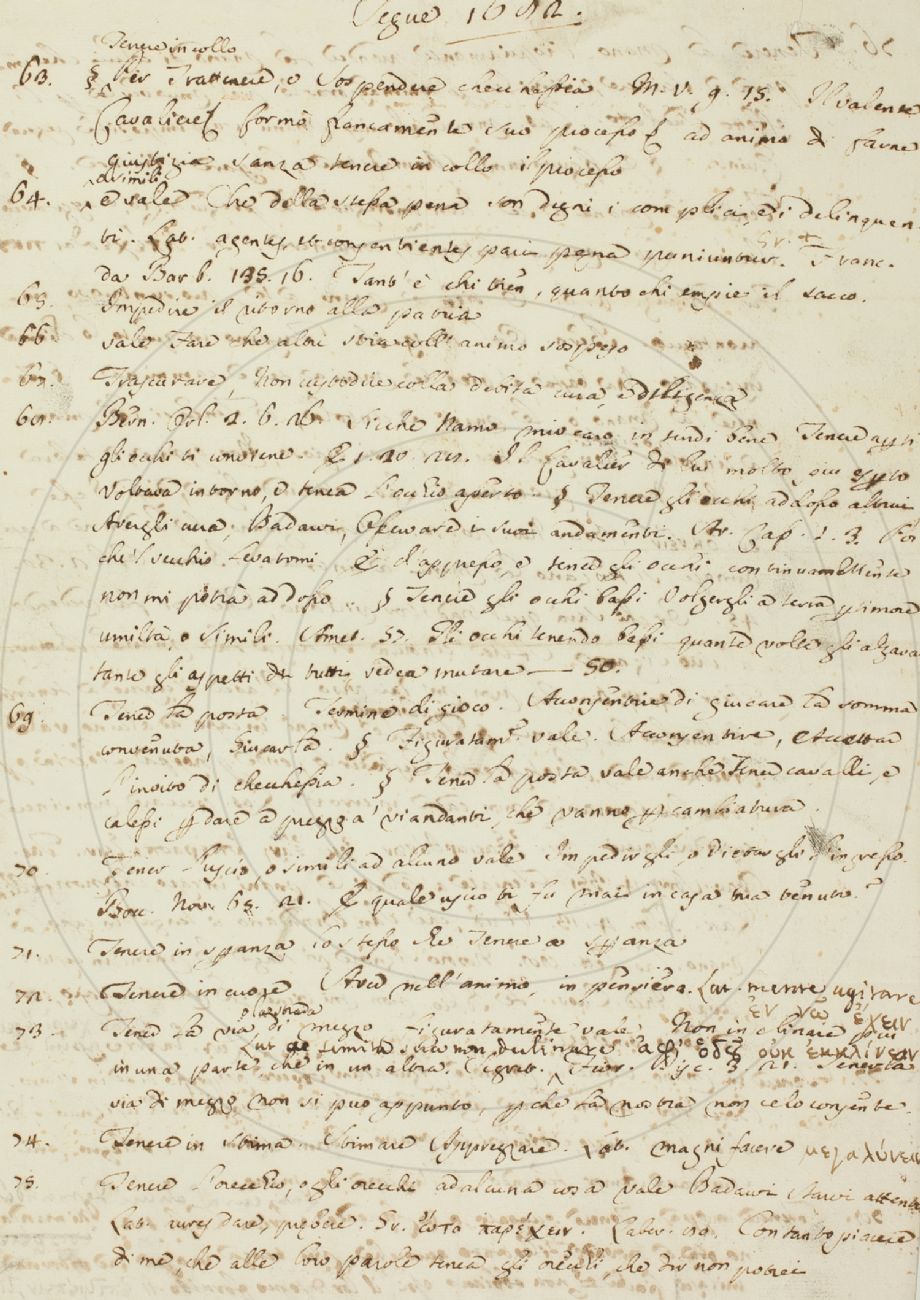 Segue 1682.
Tenere in collo
63. § Per Trattenere, o Sospendere checchessia M. V. 9. 75. Il valente
Cavaliere formò francamente suo processo ad animo di farne
giustizia sanza tenere in collo il processo
e simili
64. e vale Che della stessa pena son degni i complici, e i delinquen-
ti. Lat. agentes, et consentientes pari pęna puniuntur. Franc.
Gr. +
da Barb. 135. 16. Tant' è chi tien, quanto chi empie il sacco.
65. Impedire il ritorno alla patria
66. vale Fare che altri stia coll' animo sospeso
67. Trascurare, Non custodire colla debita cura, e diligenza
68. Bern. Orl. 2. 6. 26. Sicche Namo mio caro intendi bene Tenere aperti
gli occhi ti conviene. E 1. 20. Il Cavalier di lui molto più esperto
Voltava intorno, e tenea l'occhio aperto. § Tenere gli occhi addosso altrui
Avergli cura, Badarvi, Osservare i suoi andamenti. Ar. Cap. 1. 3. Poi
che'l vecchio levatomi d'appresso, e tener gli occhi continuamente
non mi potrà addosso. § Tenere gli occhi bassi Volgergli a terra per timore
umiltà, o simili. Amet. 57. Gli occhi tenendo bassi quante volte gli alzava
tante gli aspetti di tutti vedea mutare — 50.
69. Tener la posta Termine di gioco. Acconsentire di giucare la somma
convenuta, Giucarla. § Figuratam. vale Acconsentire, Accettar
l'invito di checchessia. § Tener la posta vale anche Tener cavalli, e
calessi per dare a prezzo a' viandanti, che vanno per cambiatura.
70. Tener l'uscio, o simili ad alcuno vale Impedirgli, o Vietargli l'ingresso.
Bocc. Nov. 65. 21. E quale uscio ti fu mai in casa tua tenuto?
71. Tenere in speranza lo stesso che Tenere a speranza
72. Tenere in cuore Aver nell' animo, in pensiero. Lat. mente agitare
ἐν νῷ ἔχειν
o la strada
73. Tener la via di mezzo figuratamente vale Non inclinare più
Lat. de semita sua non declinare ἀφ' ὁδοῦ οὐκ ἐκκλίνειν
in una parte, che in un' altra. 3. 21. Tener la
via di mezzo non si può appunto, perche la nostra non ce lo consente.
74. Tenere in stima Stimare Apprezzare. Lat. magni facere μεγαλύνειν
75. Tenere l'orecchio, o gli orecchi ad alcuna cosa vale Badarvi Starvi attento
Lat. aures dare, præbere. Gr. ὦτα παρέχειν. Con tanto piacere
di me, che alle loro parole tenea gli orecchi, che dir non potrei